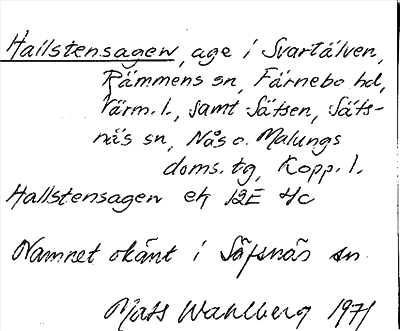 Hallstensagen, age i Svartälven,
Rämmens sn, Färnebo hd,
Värm. l., samt Sätsen, Säfs-
näs sn, Nås o. Malungs
doms. tg, Kopp. l.
Hallstensagen ek 12E 4c
Namnet okänt i Säfsnäs sn
Mats Wahlberg 1971